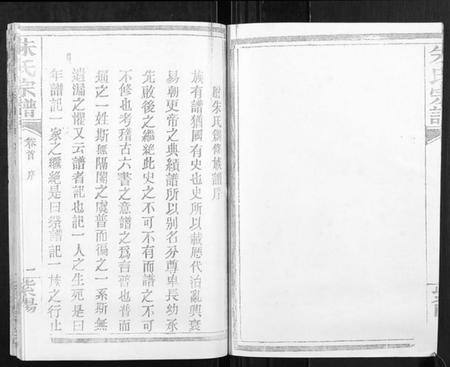 朱氏宗譜
卷首 序
一 紫陽
朱氏創修族譜序
族有譜猶國有史也史所以載歷代治亂興衰
易朝更帝之典績譜所以別名分尊卑長幼承
先啟後之繼續此史之不可不有而譜之不可
不修也考稽古六書之意譜之為言普也普而
遍之一姓斯無隔閡之虞普而徧之一系斯無
遺漏之懼又云譜者記也記一人之生死是曰
年譜記一家之繼絕是曰宗譜記一族之行止
朱氏宗譜